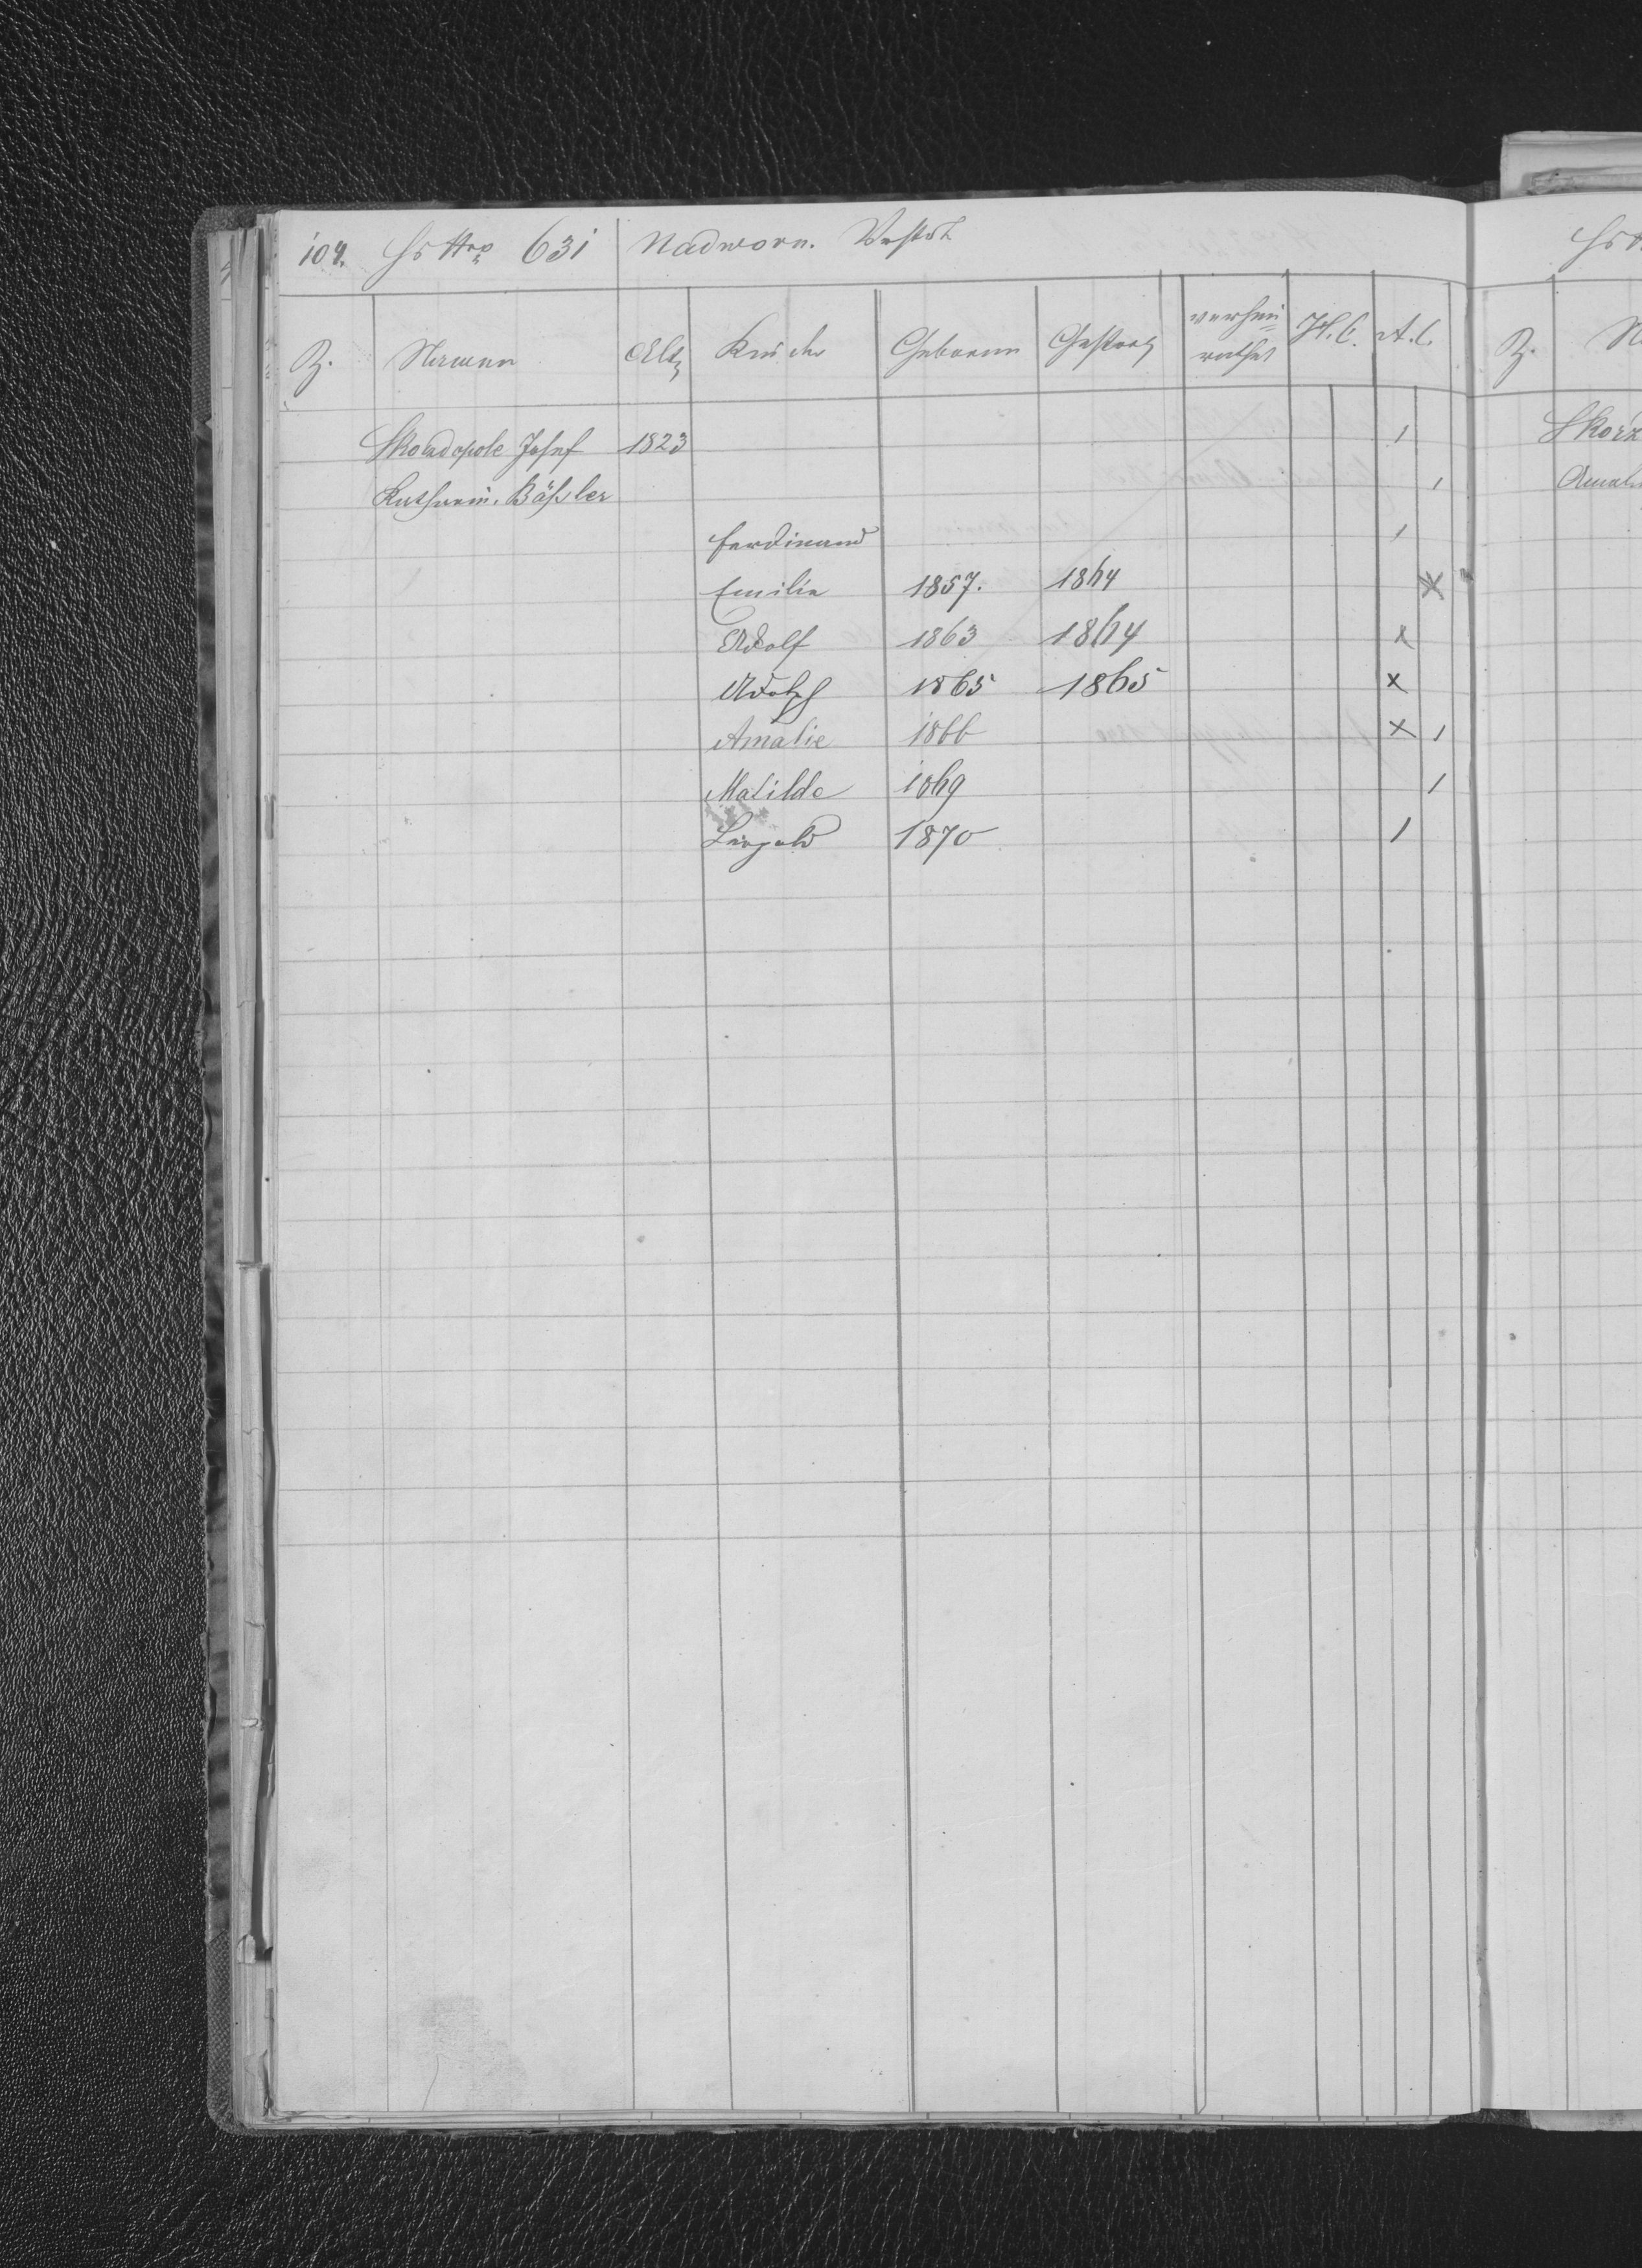 104. Hs Nro 631 Nadworn. Vorstdt
Z. Namen Alt. Kinder Geboren Gestorb verhei=
rathet H. C. A. C.
Skoadopole Josef 1823 1
Katharin. Bäßler 1
Ferdinand 1
Emilie 1857. 1864 x
Adolf 1863 1864 x
Adolph 1865 1865 x
Amalie 1866 x 1
Matilde 1869 1
Leopold 1870 1
Z.
Skorz
Amal